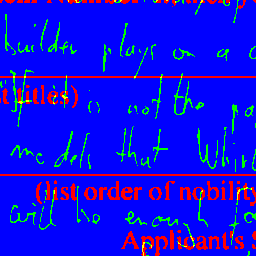 builder plays on a
t titles)
If it is not the pa
models that Whirl
(list order of nobility
will be enough fo
Applicant's S